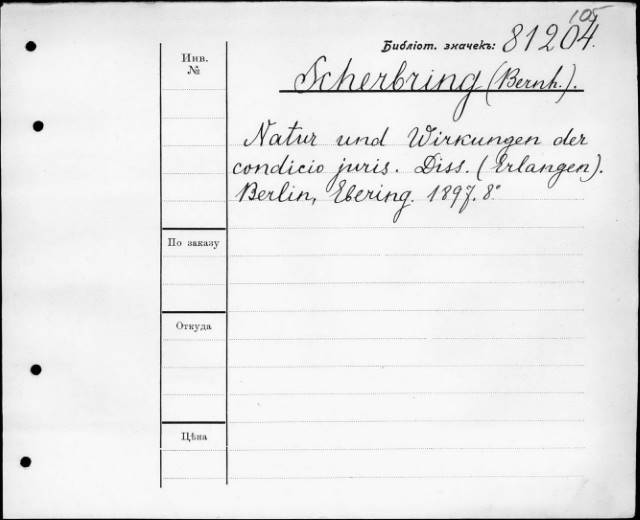 105
Библіот. значекъ: 81204.
Инв.
№
Scherbring (Bernh.).
Natur und Wirkungen der
condicio juris. Diss. (Erlangen).
Berlin, Ebering. 1897. 8°
По заказу
Откуда
Цѣна